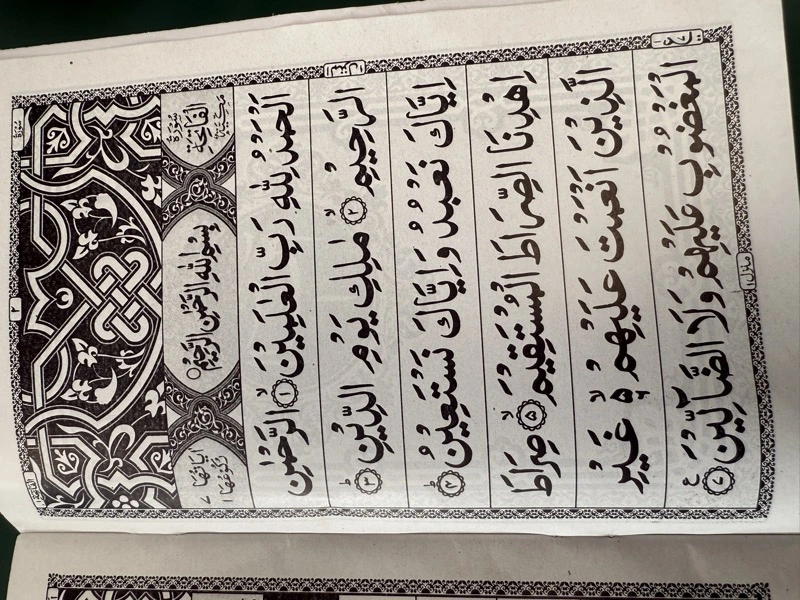 ٢
سُوْرَةُ الْفَاتِحَةِ مَكِّيَّةٌ
بِسْمِ اللهِ الرَّحْمٰنِ الرَّحِيْمِ
اٰيَاتُهَا ٧
رُكُوْعُهَا ١
اَلْحَمْدُ لِلّٰهِ رَبِّ الْعٰلَمِيْنَ ۙ ١ الرَّحْمٰنِ
الرَّحِيْمِ ۙ ٢ مٰلِكِ يَوْمِ الدِّيْنِ ؕ ٣
اِيَّاكَ نَعْبُدُ وَاِيَّاكَ نَسْتَعِيْنُ ؕ ٤
اِهْدِنَا الصِّرَاطَ الْمُسْتَقِيْمَ ۙ ٥ صِرَاطَ
الَّذِيْنَ اَنْعَمْتَ عَلَيْهِمْ ۙ ۵ غَيْرِ
الْمَغْضُوْبِ عَلَيْهِمْ وَلَا الضَّآلِّيْنَ ٧ ع
منزل ١